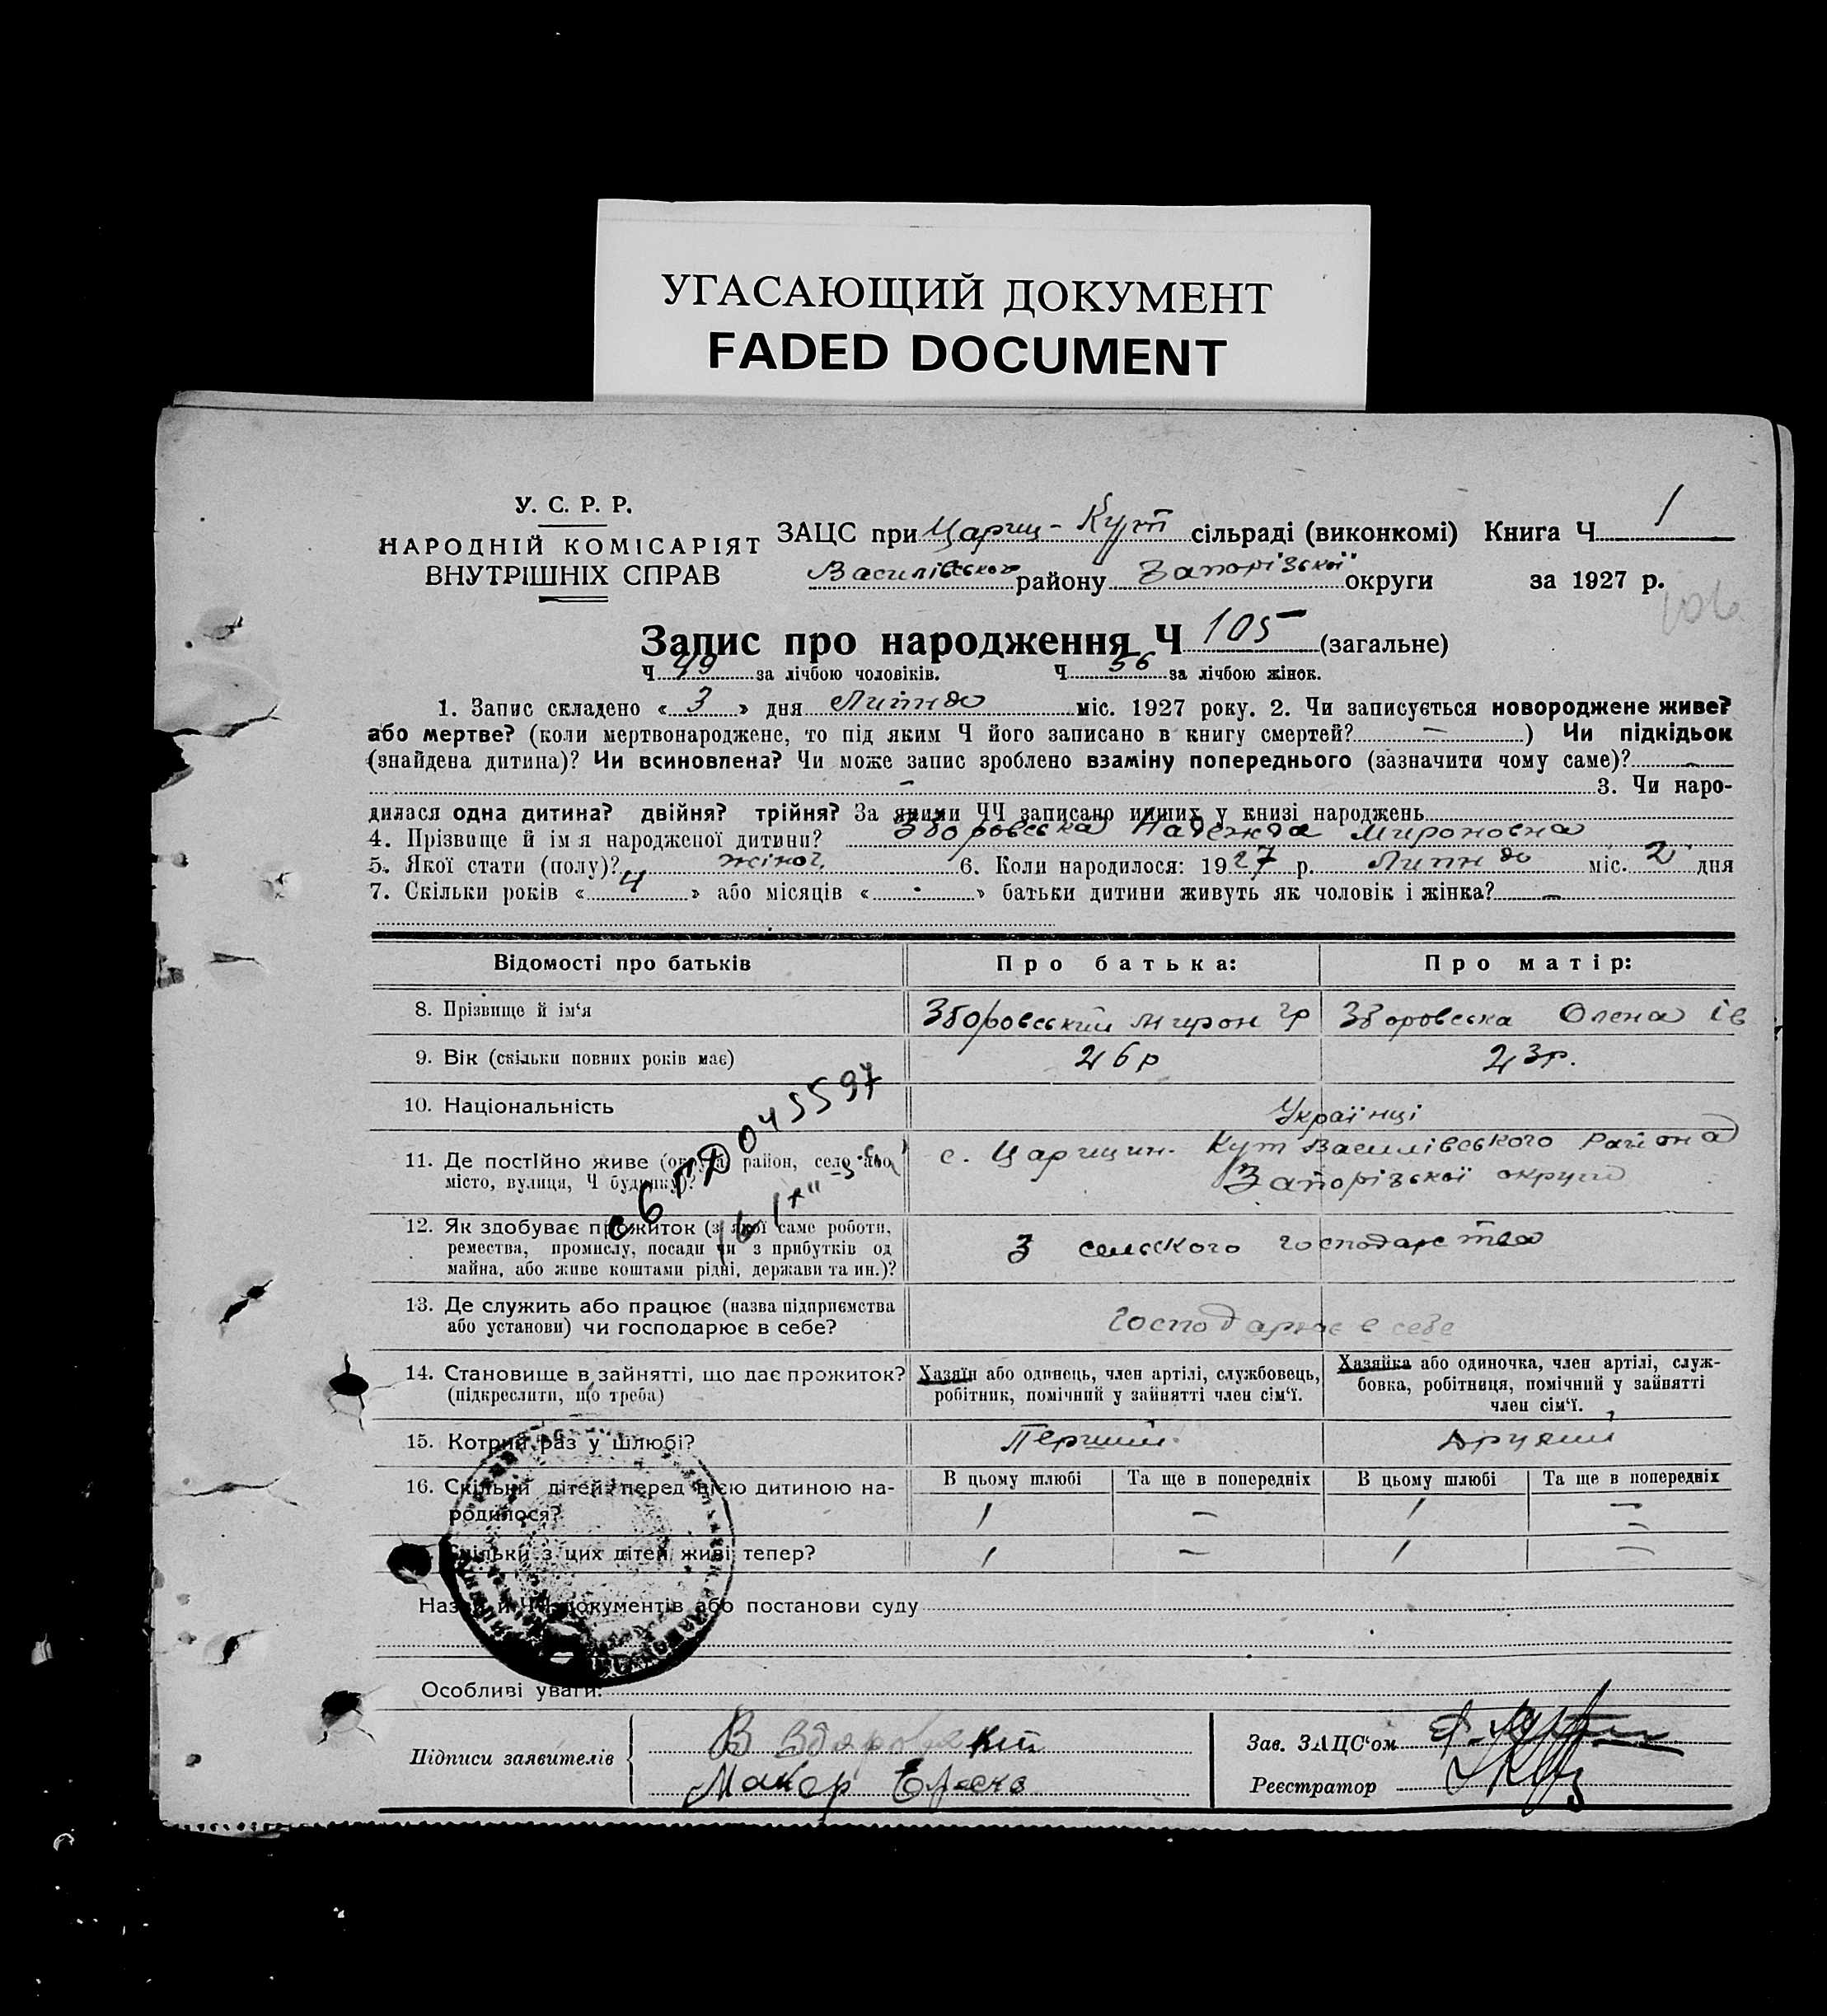 УГАСАЮЩИЙ ДОКУМЕНТ
FADED DOCUMENT
У. С. Р. Р.
НАРОДНІЙ КОМІСАРІЯТ
ВНУТРІШНІХ СПРАВ
ЗАЦС при Цариц-Кут сільраді (виконкомі) Книга Ч 1
Василівського району Запорізької округи за 1927 р.
106
Запис про народження Ч 105 (загальне)
Ч 49 за лічбою чоловіків. Ч 56 за лічбою жінок.
1. Запис складено « 3 » дня Липндо міс. 1927 року. 2. Чи записується новороджене живе?
або мертве? (коли мертвонароджене, то під яким Ч його записано в книгу смертей? — ) Чи підкідьок
(знайдена дитина)? Чи всиновлена? Чи може запис зроблено взаміну попереднього (зазначити чому саме)? —
— 3. Чи наро-
дилася одна дитина? двійня? трійня? За якими ЧЧ записано инших у книзі народжень
4. Прізвище й ім я народженої дитини? Зборовська Надежда Мироновна
5. Якої стати (полу)? жіноч. 6. Коли народилося: 1927 р. Липндо міс. 2 дня
7. Скільки років « 4 » або місяців « - » батьки дитини живуть як чоловік і жінка? —
Відомості про батьків Про батька: Про матір:
8. Прізвище й ім‘я Зборовський Мирон Гр Зборовська Олена Ів
9. Вік (скільки повних років має) 26 р 23 р.
10. Національність Українці
11. Де постійно живе (округа, район, село або
місто, вулиця, Ч будинку)?
с. Царицин-Кут Василівського Района
Запорізької округи
12. Як здобуває прожиток (з якої саме роботи,
ремества, промислу, посади чи з прибутків од
майна, або живе коштами рідні, держави та ин.)?
З сельского господарства
13. Де служить або працює (назва підприємства
або установи) чи господарює в себе?
Господарює в себе
14. Становище в зайнятті, що дає прожиток?
(підкреслити, що треба)
Хазяїн або одинець, член артілі, службовець,
робітник, помічний у зайнятті член сім‘ї.
Хазяйка або одиночка, член артілі, служ-
бовка, робітниця, помічний у зайнятті
член сім‘ї.
15. Котрий раз у шлюбі? Перший Другий
16. Скільки дітей перед цією дитиною на-
родилося?
В цьому шлюбі Та ще в попередніх В цьому шлюбі Та ще в попередніх
1 — 1 —
Скільки з цих дітей живі тепер? 1 — 1 —
Назви й ЧЧ документів або постанови суду
Особливі уваги:
Підписи заявителів
В Зборовский
Макар
Зав. ЗАЦС‘ом
Реєстратор